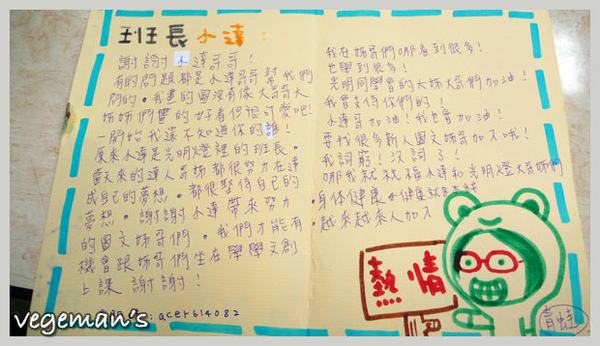 班長水達：
謝謝水達哥哥！
有的問題都是水達哥哥幫我們
問的。我畫的圖沒有像大哥哥大
姊姊們畫的好看但很可愛吧！
一開始我還不知道你的誰！
原來水達是光明燈裡的班長。
當天來的達人哥姊都很努力在達
成自己的夢想。都很堅持自己的
夢想。謝謝水達 帶來努力
的圖文姊哥們。我們才能有
機會跟姊哥們坐在學學文創
上課 謝謝！
acer614082
我在姊哥們哪看到很多！
也學到很多！
光明同學會的大姊大哥們加油！
我會支持你們的！
水達哥加油！我也會加油！
要找很多新人圖文姊哥加入哦！
我詞窮！沒詞了！
哪我就就祝福水達和光明燈大哥姊們
身体健康
越來越來人加入
熱情
青蛙
vegeman's